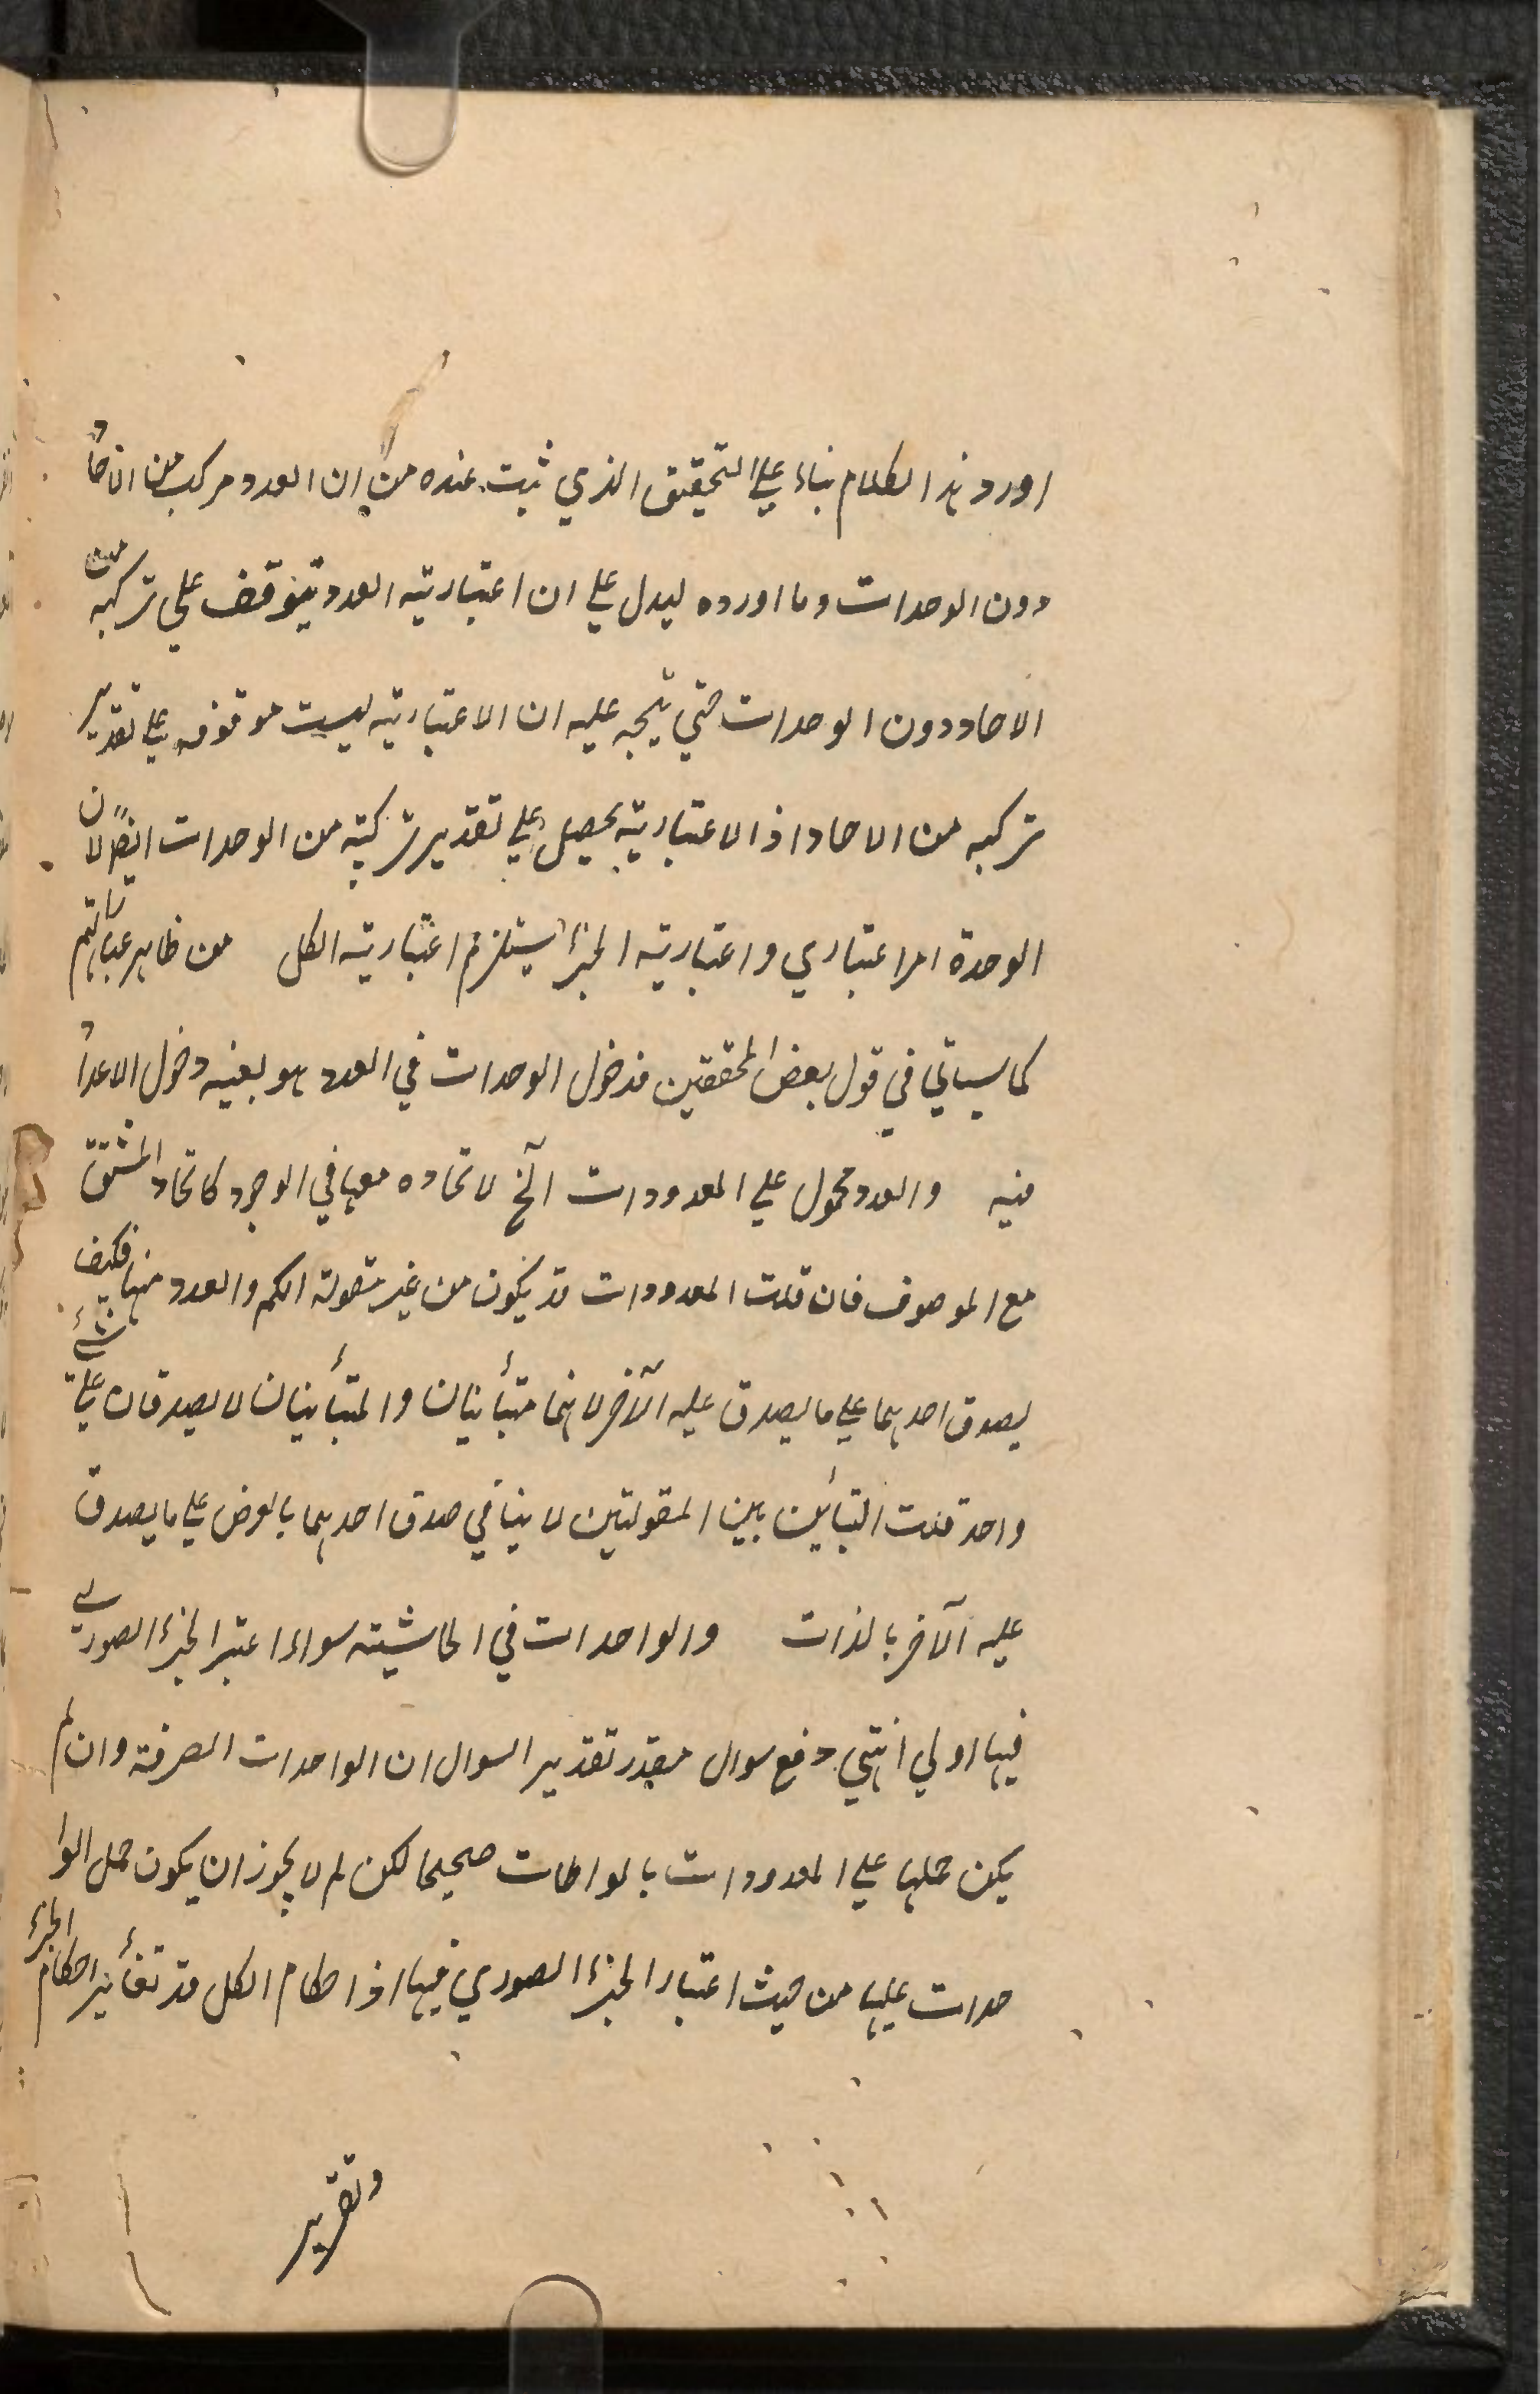 اورد هذا الكلام بناء علي التحقيق الذي ثبت عنده من ان العدد مركب من الاحاد
دون الوحدات وما اورده ليدل علي ان اعتباريته العدد يتوقف علي تركبه من
الاحاد دون الوحدات حتي يتجه عليه ان الاعتباريته ليست موقوفه علي تقدير
تركبه من الاحاد اذ الاعتباريته يحصل علي تقدير تركبه من الوحدات ايضًا لان
الوحدة امر اعتباري واعتباريته الجزء يستلزم اعتباريته الكل من ظاهر عباراتهم
كما سياتي في قول بعض المحققين فدخول الوحدات في العدد هو بعينه دخول الاعداد
فيه والعدد محمول علي المعدودات آلخ لاتحاده معها في الوجود كاتحاد المشتق
مع الموصوف فان قلت المعدودات قد يكون من غير مقولته الكم والعدد منها فكيف
يصدق احدهما علي ما يصدق عليه الآخر لانهما متبأينان والمتبأينان لا يصدقان علي شئ
واحد قلت التبأين بين المقولتين لا ينافي صدق احدهما بالعرض علي ما يصدق
عليه الآخر بالذات والواحدات في الحاشيته سواء اعتبر الجزء الصوري
فيها اولي انتهي دفع سوال مقدر تقدير السوال ان الواحدات الصرفة وان لم
يكن حملها علي المعدودات بالمواطات صحيحا لكن لم لا يجوز ان يكون حمل الوا
حدات عليها من حيث اعتبار الجزء الصوري فيها اذ احكام الكل قد تغأير احكام الجزء
وتقرير